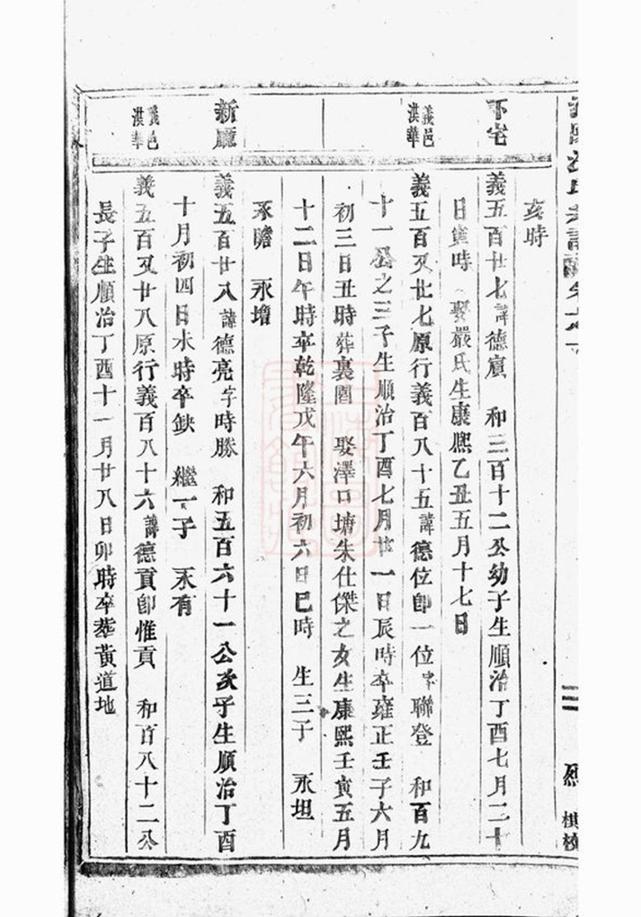 亥時
下宅
義五百廿七諱德賔　和三百十二公幼子生順治丁酉七月二十
日寅時　娶嚴氏生康熙乙丑五月十七日
義邑
漢華
義五百又廿七原行義百八十五諱德位卽一位字聯登　和百九
十一公之三子生順治丁酉七月廿一日辰時卒雍正壬子六月
初三日丑時葬裏園　娶澤口塘朱仕傑之女生康熙壬寅五月
十二日午時卒乾隆戊午六月初六日巳時　生三子　永坦
永贍　永增
新廳
義五百廿八諱德亮字時勝　和五百六十一公次子生順治丁酉
十月初四日未時卒缺　繼一子　永有
義邑
漢華
義五百又廿八原行義百八十六諱德貢卽惟貢　和百八十二公
長子生順治丁酉十一月廿八日卯時卒塟黃道地